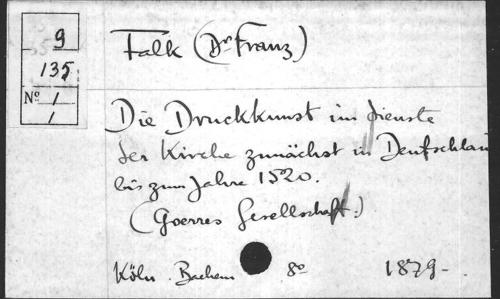 9
135
Nº 1
1
Falk (Dr Franz)
Die Druckkunst im dienste
der Kirche zunächst in Deutschlan
bis zum Jahre 1520.
(Goerres Gesellschaft.)
Köln. Bachem 8º 1879-